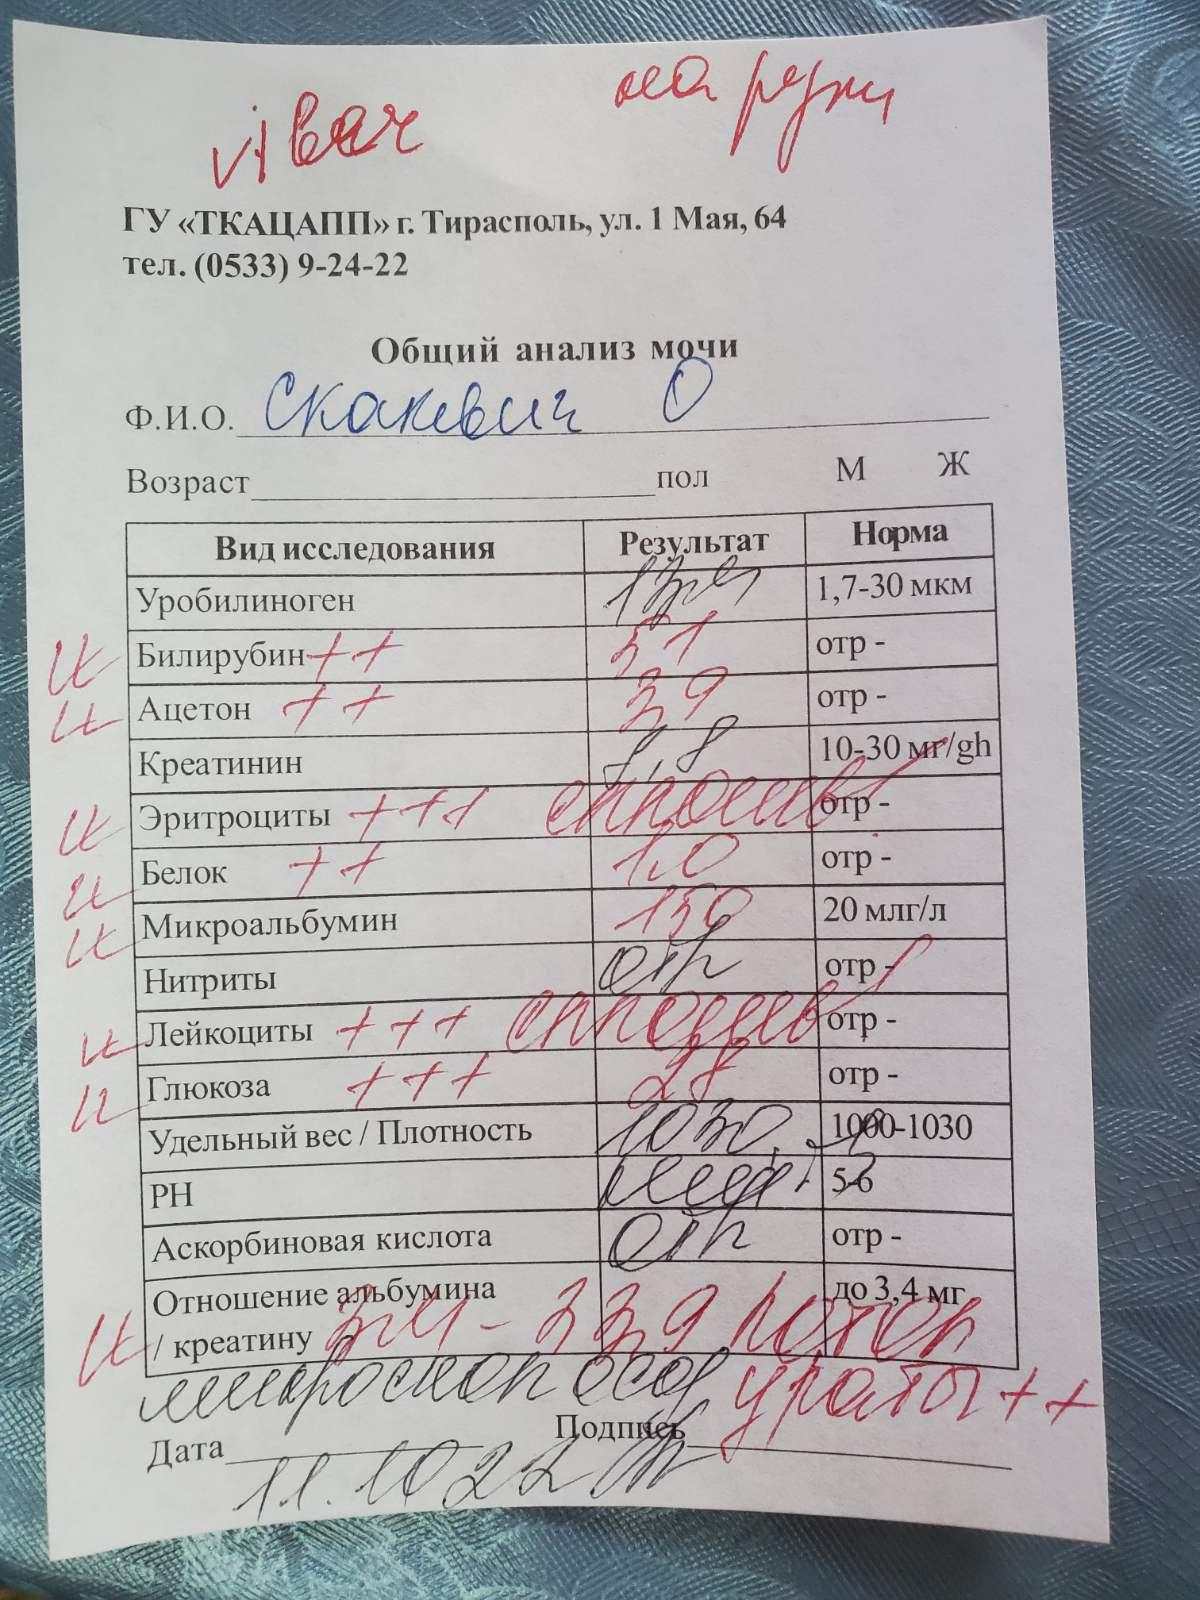 на руки
ГУ «ТКАЦАПП» г. Тирасполь, ул. 1 Мая, 64
тел. (0533) 9-24-22
Общий анализ мочи
Ф.И.О. Скакевич О
Возраст пол М Ж
Вид исследования Результат Норма
Уробилиноген 1,7-30 мкм
Билирубин ++ 51 отр -
Ацетон ++ 3,9 отр -
Креатинин 8,8 10-30 мг/gh
Эритроциты +++ сплошь отр -
Белок ++ 1,0 отр -
Микроальбумин 150 20 млг/л
Нитриты отр отр -
Лейкоциты +++ сплошь отр -
Глюкоза +++ 28 отр -
Удельный вес / Плотность 1030 1000-1030
РН 5-6
Аскорбиновая кислота отр отр -
Отношение альбумина до 3,4 мг
/ креатину 33,9
микроскоп осад ураты ++
Дата 11.10 22 Подпись